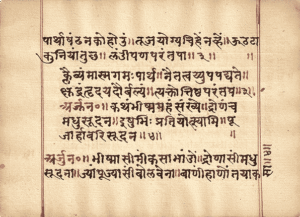 पार्था षंढ न को होउं ॥ तूज योग्य चि हें नव्हें ॥ ऊठ टा
कुनि या तुछ ॥ लंडीपण परंतपा ॥ २ ॥
क्लैब्यं मास्म गमः पार्थ ॥ नैतत्वय्युपपद्यते ॥
क्षुद्रं हृदयदौर्बल्यं ॥ त्यक्त्वोत्तिष्ठ परंतप ॥ ३ ॥
अर्जुन ० ॥ कथं भीष्ममहं संख्ये ॥ द्रोणं च
मधुसूदन ॥ इषुभिः प्रतियोत्स्यामि ॥ पू
जार्हावरिसूदन ॥ ४ ॥
अर्जुन ॥ भीष्मासी मी कसा भांजों ॥ द्रोणासी मधु
सूदना ॥ ज्यां पूज्यासी बोलवेना ॥ बाणीं हाणों न या क